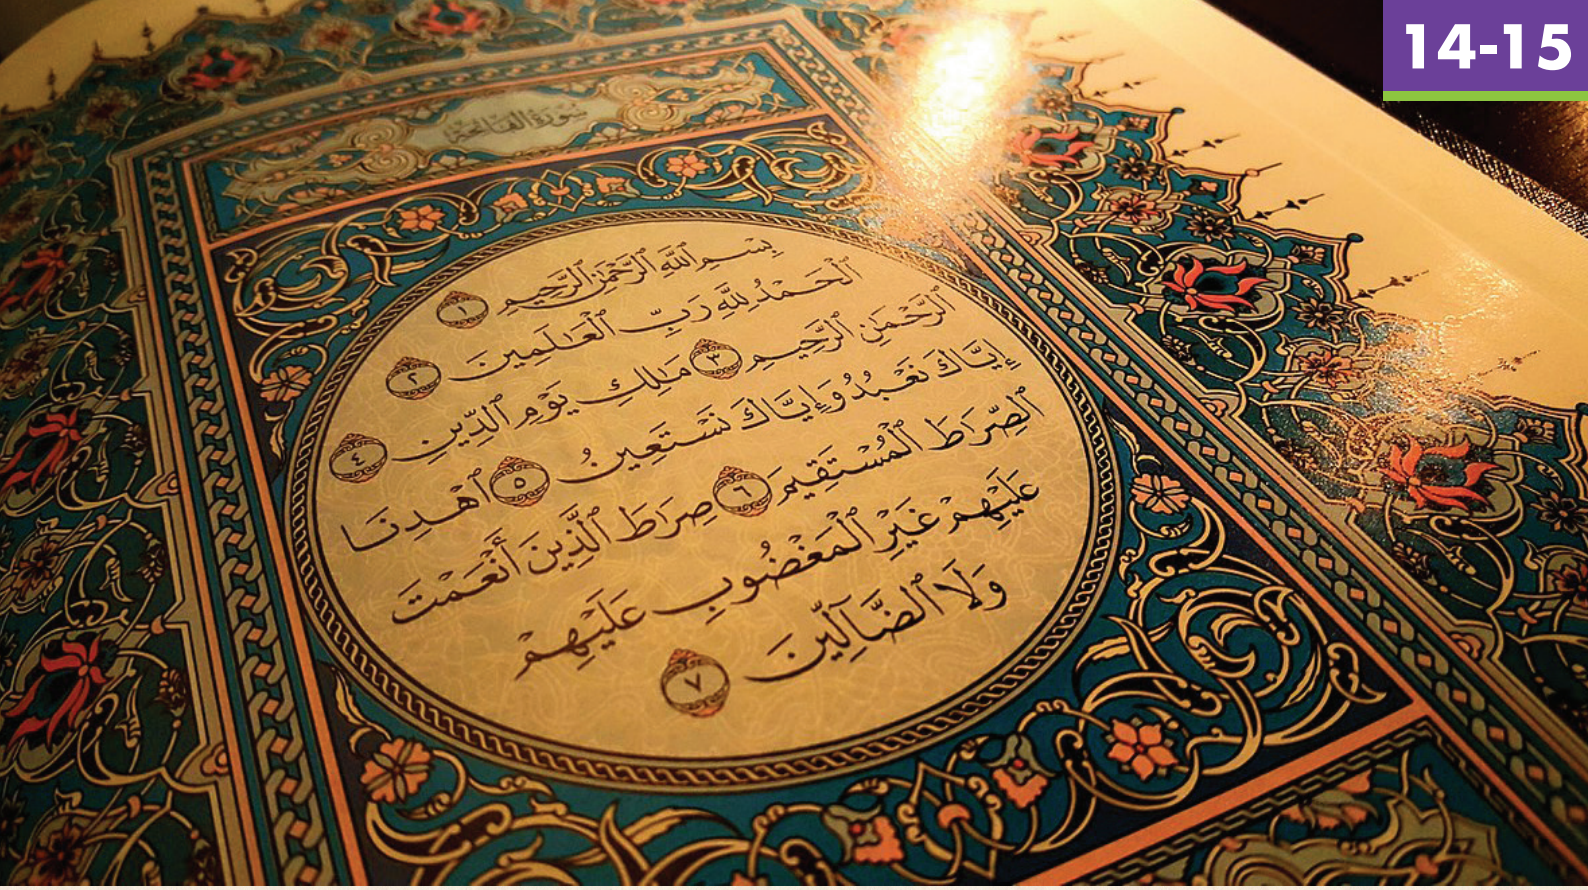 14-15
سُورَةُ الفَاتِحَةِ
بِسْمِ ٱللَّهِ ٱلرَّحْمَٰنِ ٱلرَّحِيمِ ١
ٱلْحَمْدُ لِلَّهِ رَبِّ ٱلْعَٰلَمِينَ ٢
ٱلرَّحْمَٰنِ ٱلرَّحِيمِ ٣ مَٰلِكِ يَوْمِ ٱلدِّينِ ٤
إِيَّاكَ نَعْبُدُ وَإِيَّاكَ نَسْتَعِينُ ٥ ٱهْدِنَا
ٱلصِّرَٰطَ ٱلْمُسْتَقِيمَ ٦ صِرَٰطَ ٱلَّذِينَ أَنْعَمْتَ
عَلَيْهِمْ غَيْرِ ٱلْمَغْضُوبِ عَلَيْهِمْ
وَلَا ٱلضَّآلِّينَ ٧